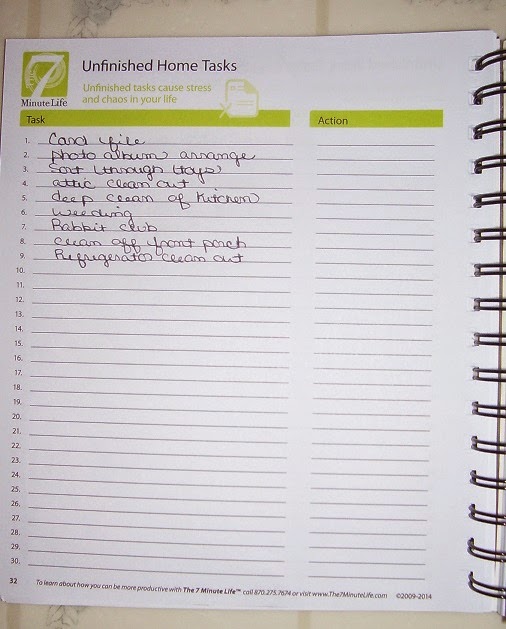 Unfinished Home Tasks
Unfinished tasks cause stress
and chaos in your life
7
MinuteLife
Task Action
1. Card file
2. photo album arrange
3. Sort through toys
4. attic clean out
5. deep clean of kitchen
6. weeding
7. Rabbit club
8. clean off front porch
9. Refrigerator clean out
10.
11.
12.
13.
14.
15.
16.
17.
18.
19.
20.
21.
22.
23.
24.
25.
26.
27.
28.
29.
30.
32 To learn about how you can be more productive with The 7 Minute Life™ call 870.275.7674 or visit www.The7MinuteLife.com ©2009-2014